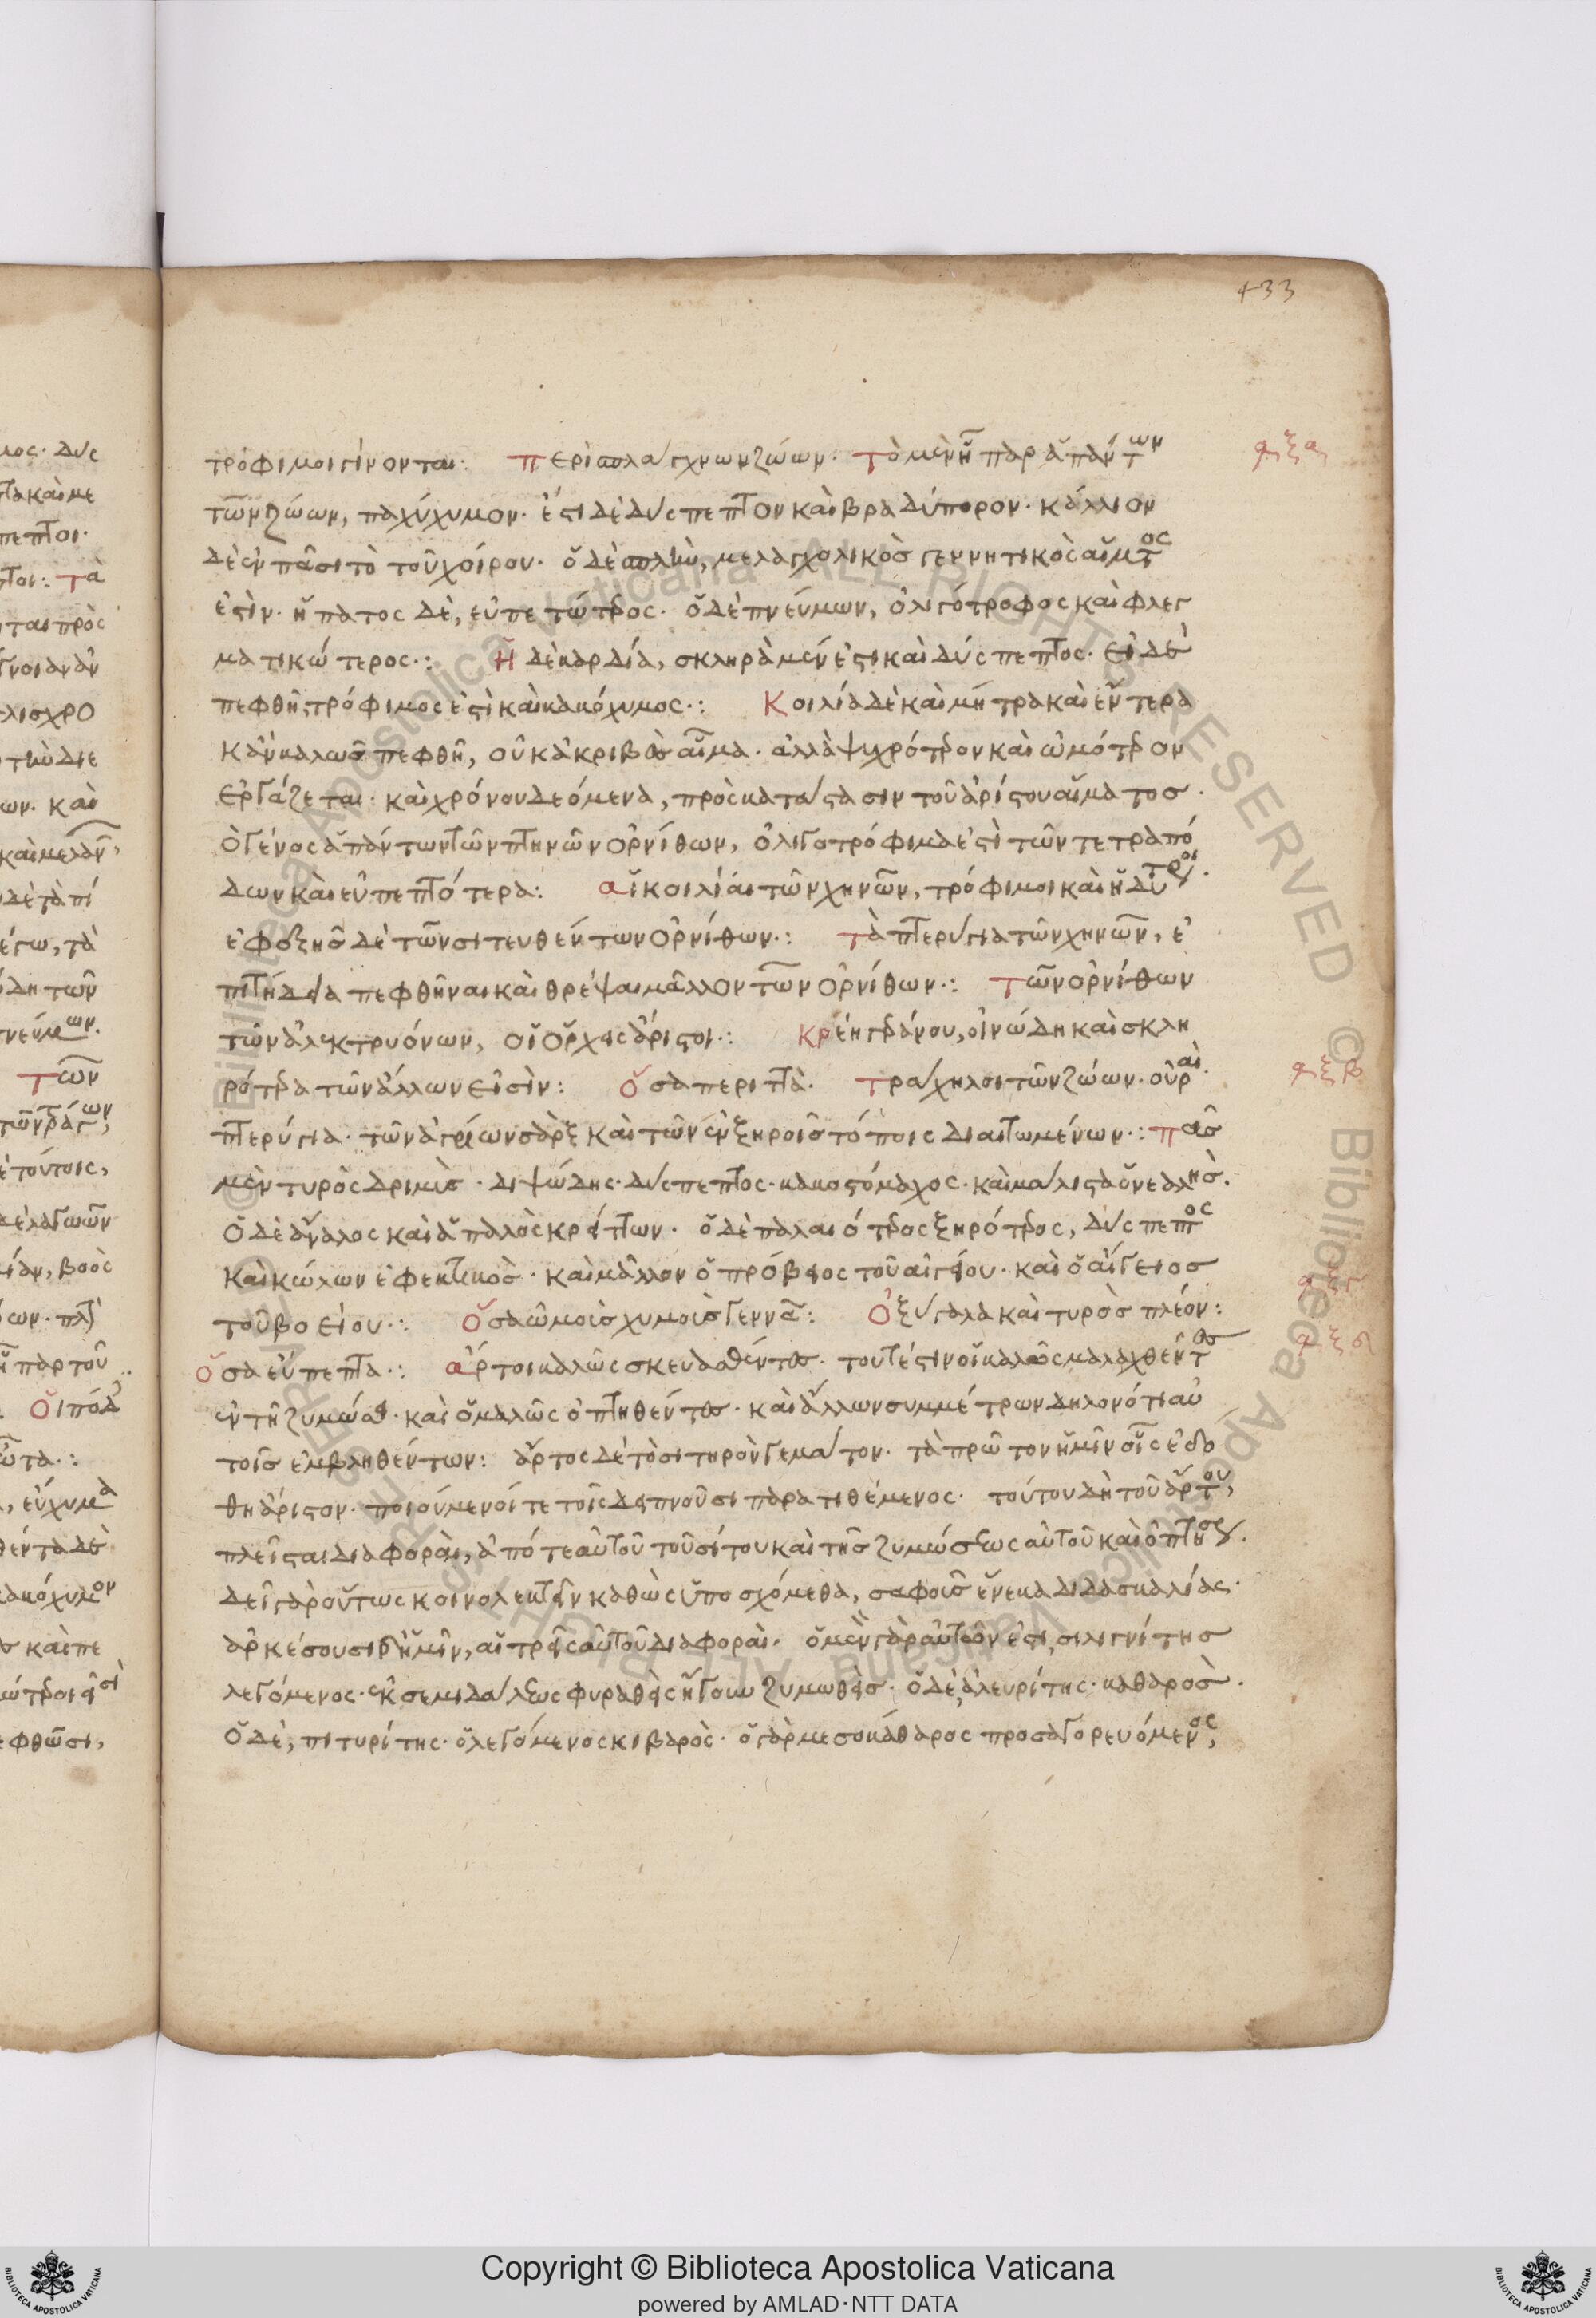 433
τρόφιμοι γίνονται: Περὶ σπλάγχνων ζώων. Τὸ μὲν ἧπαρ ἁπάντων
τῶν ζώων, παχύχυμον. ἔστι δὲ δύσπεπτον καὶ βραδύπορον. κάλλιον
δὲ ἐν πᾶσι τὸ τοῦ χοίρου. ὁ δὲ σπλὴν, μελαγχολικὸς γεννητικὸς αἵματος
ἐστὶν. ἥπατος δὲ, εὐπεπτότερος. ὁ δὲ πνεύμων, ὀλιγότροφος καὶ φλεγ
ματικώτερος.: Ἡ δὲ καρδία, σκληρὰ μέν ἐστι καὶ δύσπεπτος. εἰ δὲ
πεφθῆ, τρόφιμος ἐστὶ καὶ κακόχυμος.: Κοιλία δὲ καὶ μήτρα καὶ ἔντερα
κἂν καλῶς πεφθῆ, οὐκ ἀκριβῶς αἷμα. ἀλλὰ ψυχρότερον καὶ ὠμότερον
ἐργάζεται. καὶ χρόνου δεόμενα, πρὸς κατάστασιν τοῦ ἀρίστου αἵματος.
Ὁ γένος ἁπάντων τῶν πτηνῶν ὀρνίθων, ὀλιγοτρόφιμα ἐστὶ τῶν τετραπό
δων καὶ εὐπεπτότερα: αἱ κοιλίαι τῶν χηνῶν, τρόφιμοι καὶ ἡδύτεροι.
ἐφεξῆς δὲ τῶν σιτευθέντων ὀρνίθων.: τὰ πτερύγια τῶν χηνῶν, ἐ
πιτήδεια πεφθῆναι καὶ θρέψαι μᾶλλον τῶν ὀρνίθων.: τῶν ὀρνίθων
τῶν ἀλεκτρυόνων, οἱ ὄρχεις ἄριστοι.: κρέη γεράνου, οἰνώδη καὶ σκλη
ρότερα τῶν ἄλλων εἰσὶν: ὅσα περιττὰ. τράχηλοι τῶν ζώων. οὐραὶ.
πτερύγια. τῶν ἀγρίων σὰρξ καὶ τῶν ἐν ξηροῖς τόποις διαιτωμένων.: πᾶς
μὲν τυρὸς δριμὺς. διψώδης. δύσπεπτος. κακοστόμαχος. καὶ μάλιστα ὁ νεαλὴς.
ὁ δὲ ἄναλος καὶ ἁπαλὸς κρείττων. ὁ δὲ παλαιότερος ξηρότερος, δύσπεπτος
καὶ κώλων ἐφεκτικὸς. καὶ μᾶλλον ὁ πρόβειος τοῦ αἰγείου. καὶ ὁ αἴγειος
τοῦ βοείου.: ὅσα ὠμοὺς χυμοὺς γεννᾶ: Ὀξύγαλα καὶ τυρὸς πλέον:
ὅσα εὔπεπτα.: ἄρτοι καλῶς σκευασθέντες. τουτέστιν οἱ καλῶς μαλαχθέντες
ἐν τῆ ζυμώσει. καὶ ὁμαλῶς ὀπτηθέντες. καὶ ἄλλων συμμέτρων δηλονότι αὐ
τοῖς ἐμβληθέντων: ἄρτος δὲ τὸ σιτηρὸν γεμάτον. τὰ πρῶτον ἡμῖν σῖς ἐδο
θη ἄριστον. ποιούμενοί τε τοῖς δειπνοῦσι παρατιθέμενος. τούτου δὴ τοῦ ἄρτου,
πλεῖσται διαφοραὶ, ἀπό τε αὐτοῦ τοῦ σίτου καὶ τῆς ζυμώσεως αὐτοῦ καὶ ὀπτήσεως.
δεῖ γὰρ οὕτως κοινολεκτεῖν καθὼς ὑποσχόμεθα, σαφοῦς ἕνεκα διδασκαλίας.
ἀρκέσουσι δ' ἡμῖν, αἱ τρεῖς αὐτοῦ διαφοραὶ. ὁ μὲν γὰρ αὐτῶν ἐστι, σιλιγνίτης
λεγόμενος. ἐκ σεμιδάλεως φυραθεὶς ἤγουν ζυμωθεὶς. ὁ δὲ, ἀλευρίτης. καθαρὸς.
ὁ δὲ, πιτυρίτης. ὁ λεγόμενος κιβαρὸς. ὁ γὰρ μεσοκάθαρος προσαγορευόμενος,
φξα
φξβ
φξγ
φξδ
Copyright © Biblioteca Apostolica Vaticana
powered by AMLAD·NTT DATA